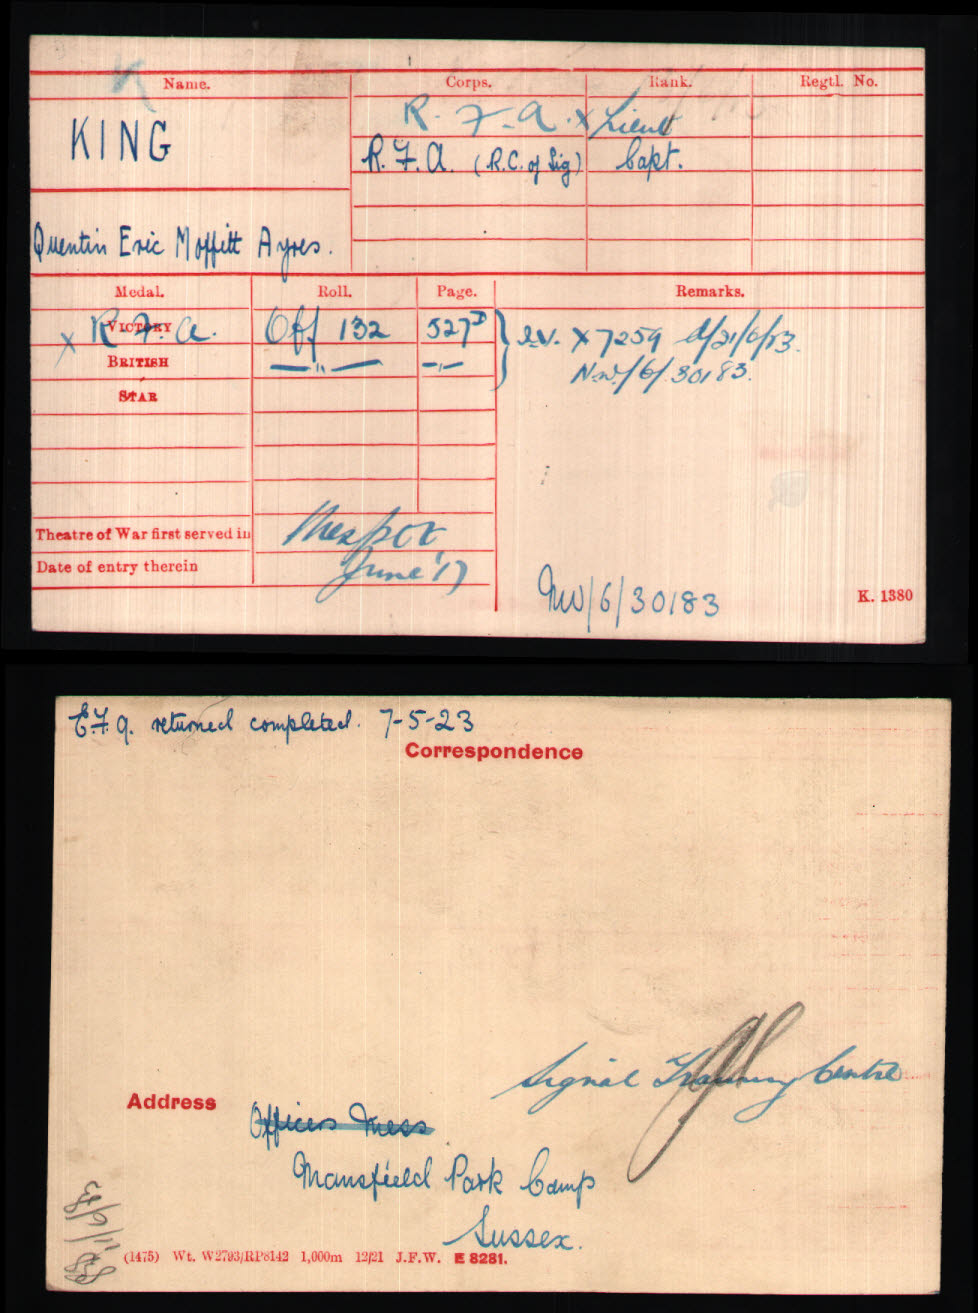 K
Name. Corps. Rank. Regtl. No.
R. F. A. x Lieut
KING R.F.A. (R.C. of Sig) Capt.
Quentin Eric Moffitt Ayres.
Medal. Roll. Page. Remarks.
x VICTORY R.F.A. Off 132 527D } I.V. X 7259 d/21/6/23.
BRITISH —"— —"— N.W/6/30183.
STAR
Theatre of War first served in Mespot
Date of entry therein June '17
NW/6/30183 K. 1380
E.F.9. returned completed. 7-5-23
Correspondence
Signal Training Centre
Address
Officers Mess
Mansfield Park Camp
Sussex.
(1475) Wt. W2793/RP8142 1,000m 12/21 J.F.W. E 8281.